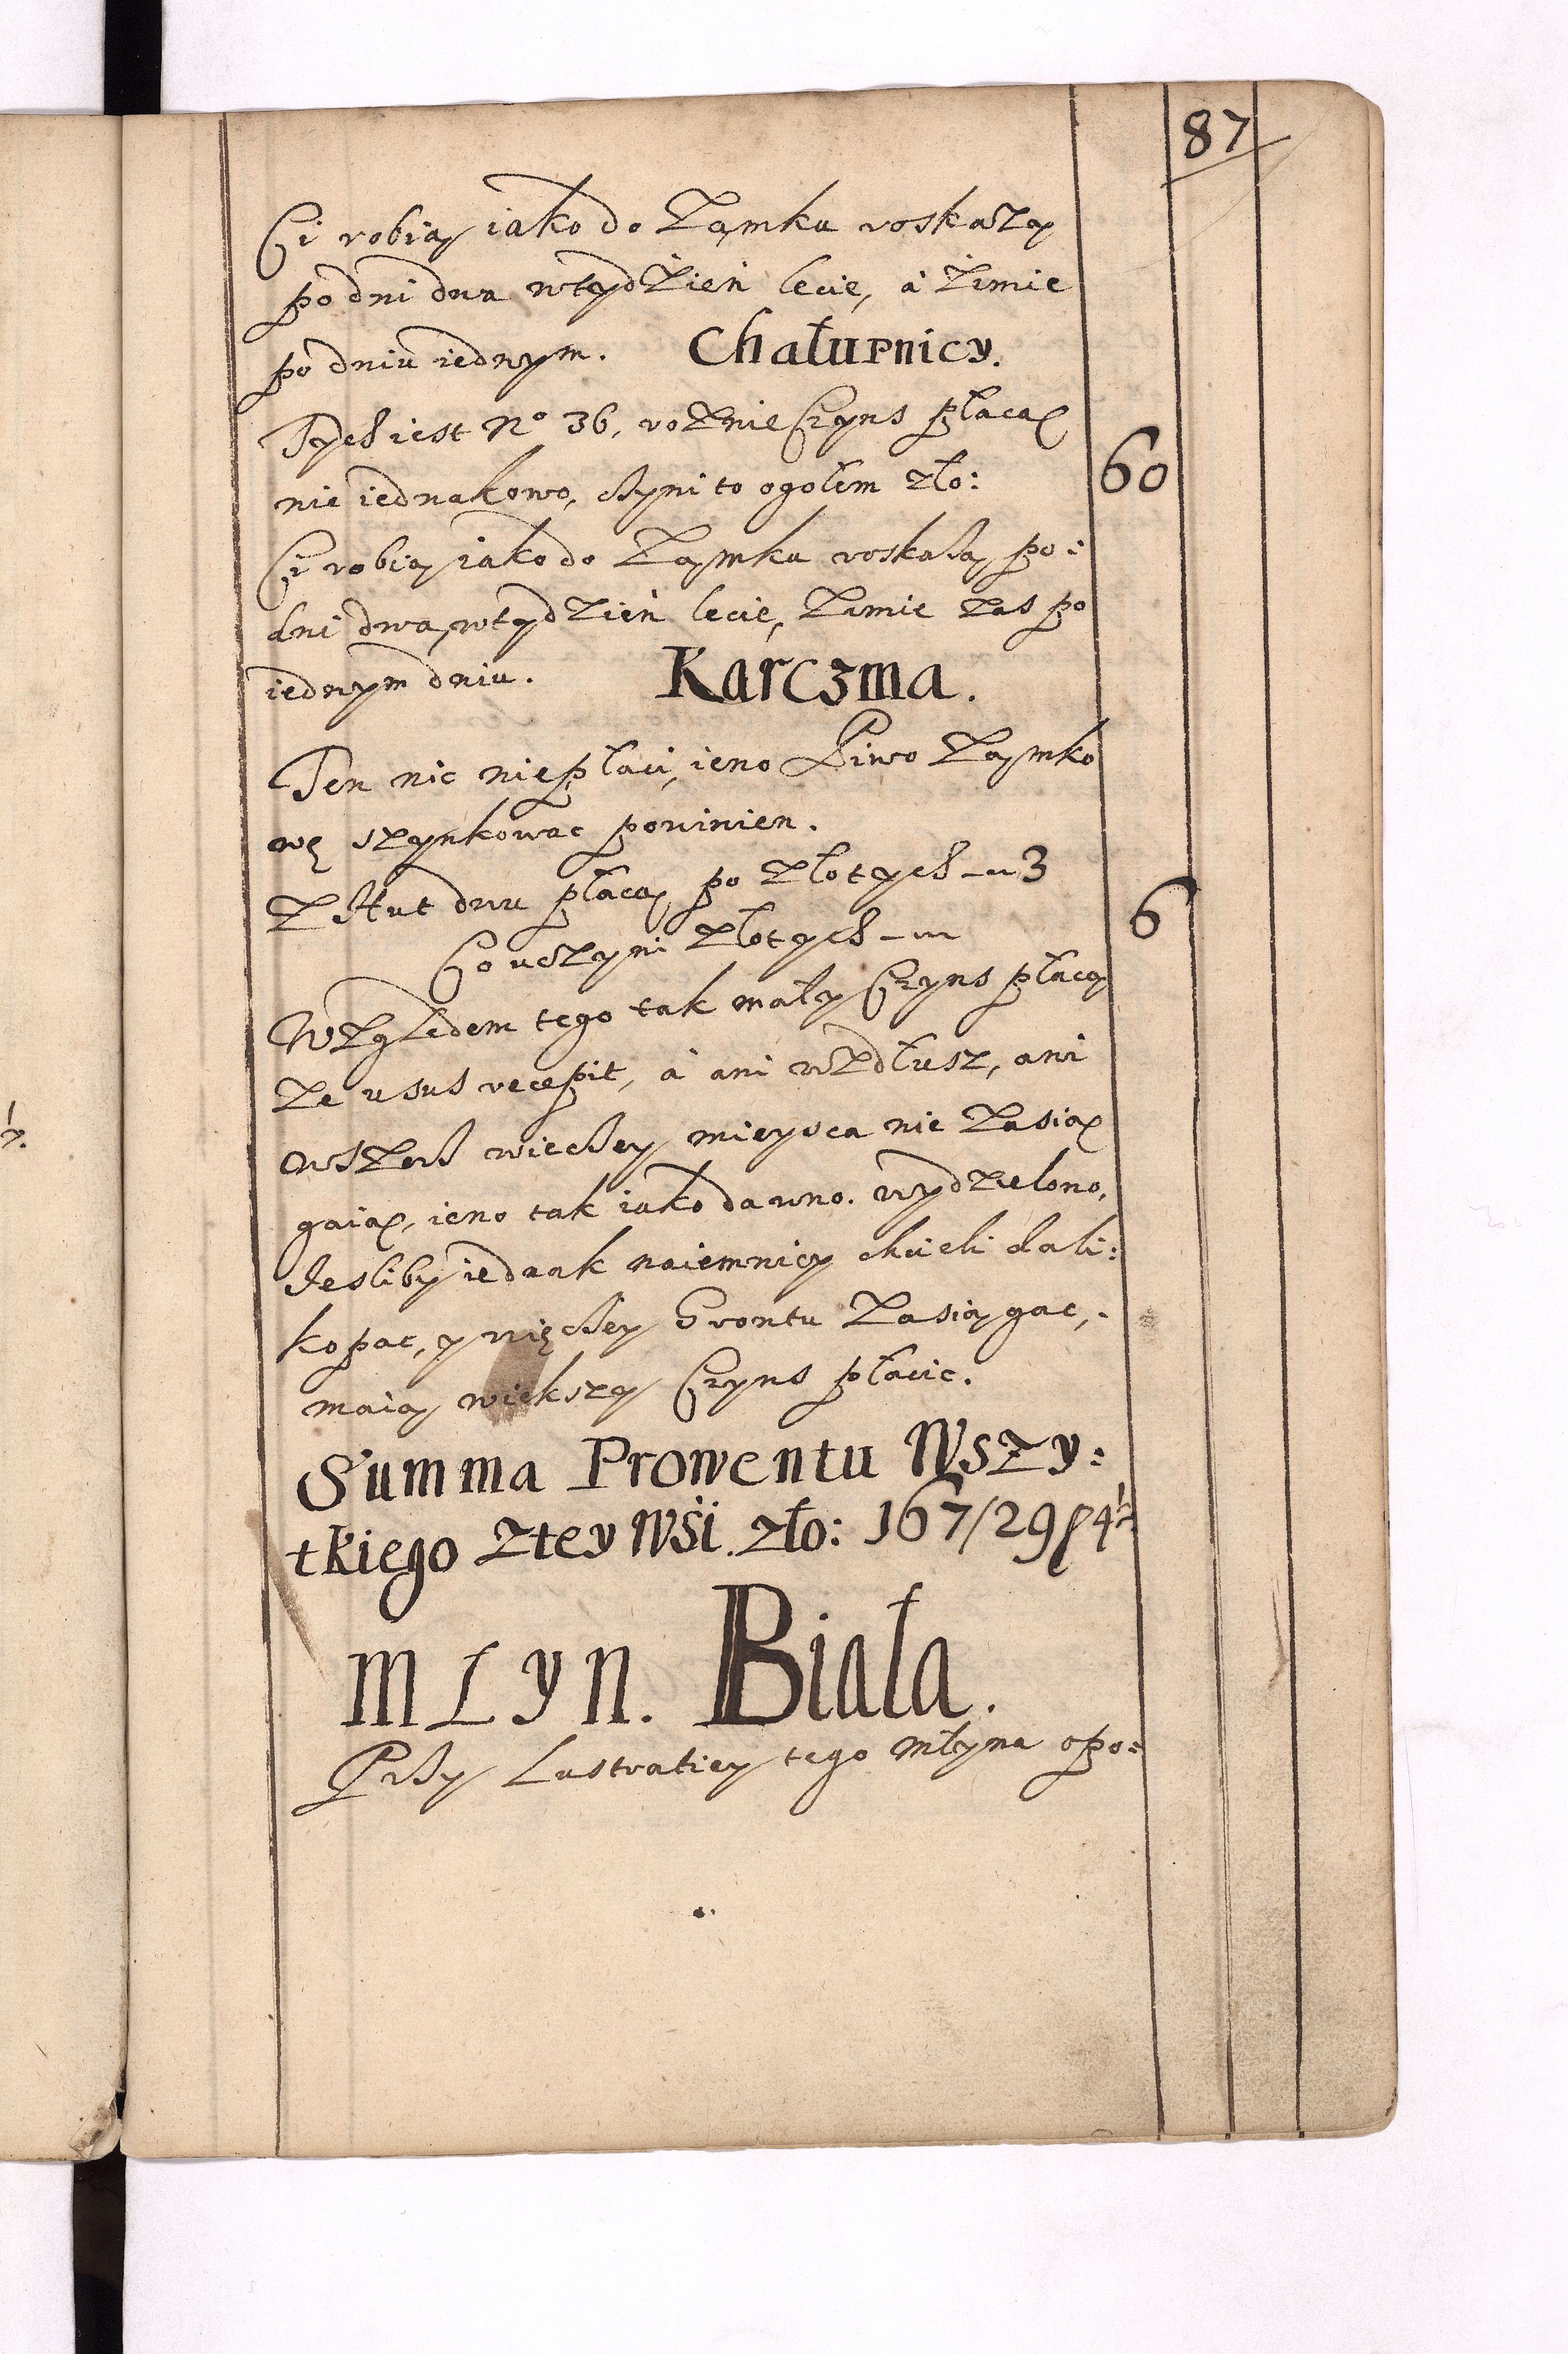 87
Ci robią iako do Zamku roskażą
po dni dwa w tydzień lecie, á zimie
po dniu iednym. Chałupnicy.
Tych iest No 36, rożnie Czyns płacą
nie iednakowo, czyni to ogołem zło: 60
Ci robią iako do Zamku roskażą po:
dni dwa, w tydzień lecie, Zimie zas po
iednym dniu. Karczma.
Ten nic niepłaci, ieno Piwo Zamko
wę szynkowac powinien.
Z Hut dwu płacą po złotych 3
Co uczyni złotych 6
Względem tego tak mały Czyns płacą
że usus recepit, á ani wzdłusz, ani
wszerz wieczey mieysca nie zasią
gaią, ieno tak iako dawno wydzielono.
Jesliby iednak naiemnicy chcieli dali:
kopac, y więczey Grontu zasiągac,
maią wiekszy Czyns płacic.
Summa Prowentu Wszy:
tkiego ztey Wsi. zło: 167/29 / 4 1/2
MŁYN. Biała.
Przy Lustratiey tego młyna opo: